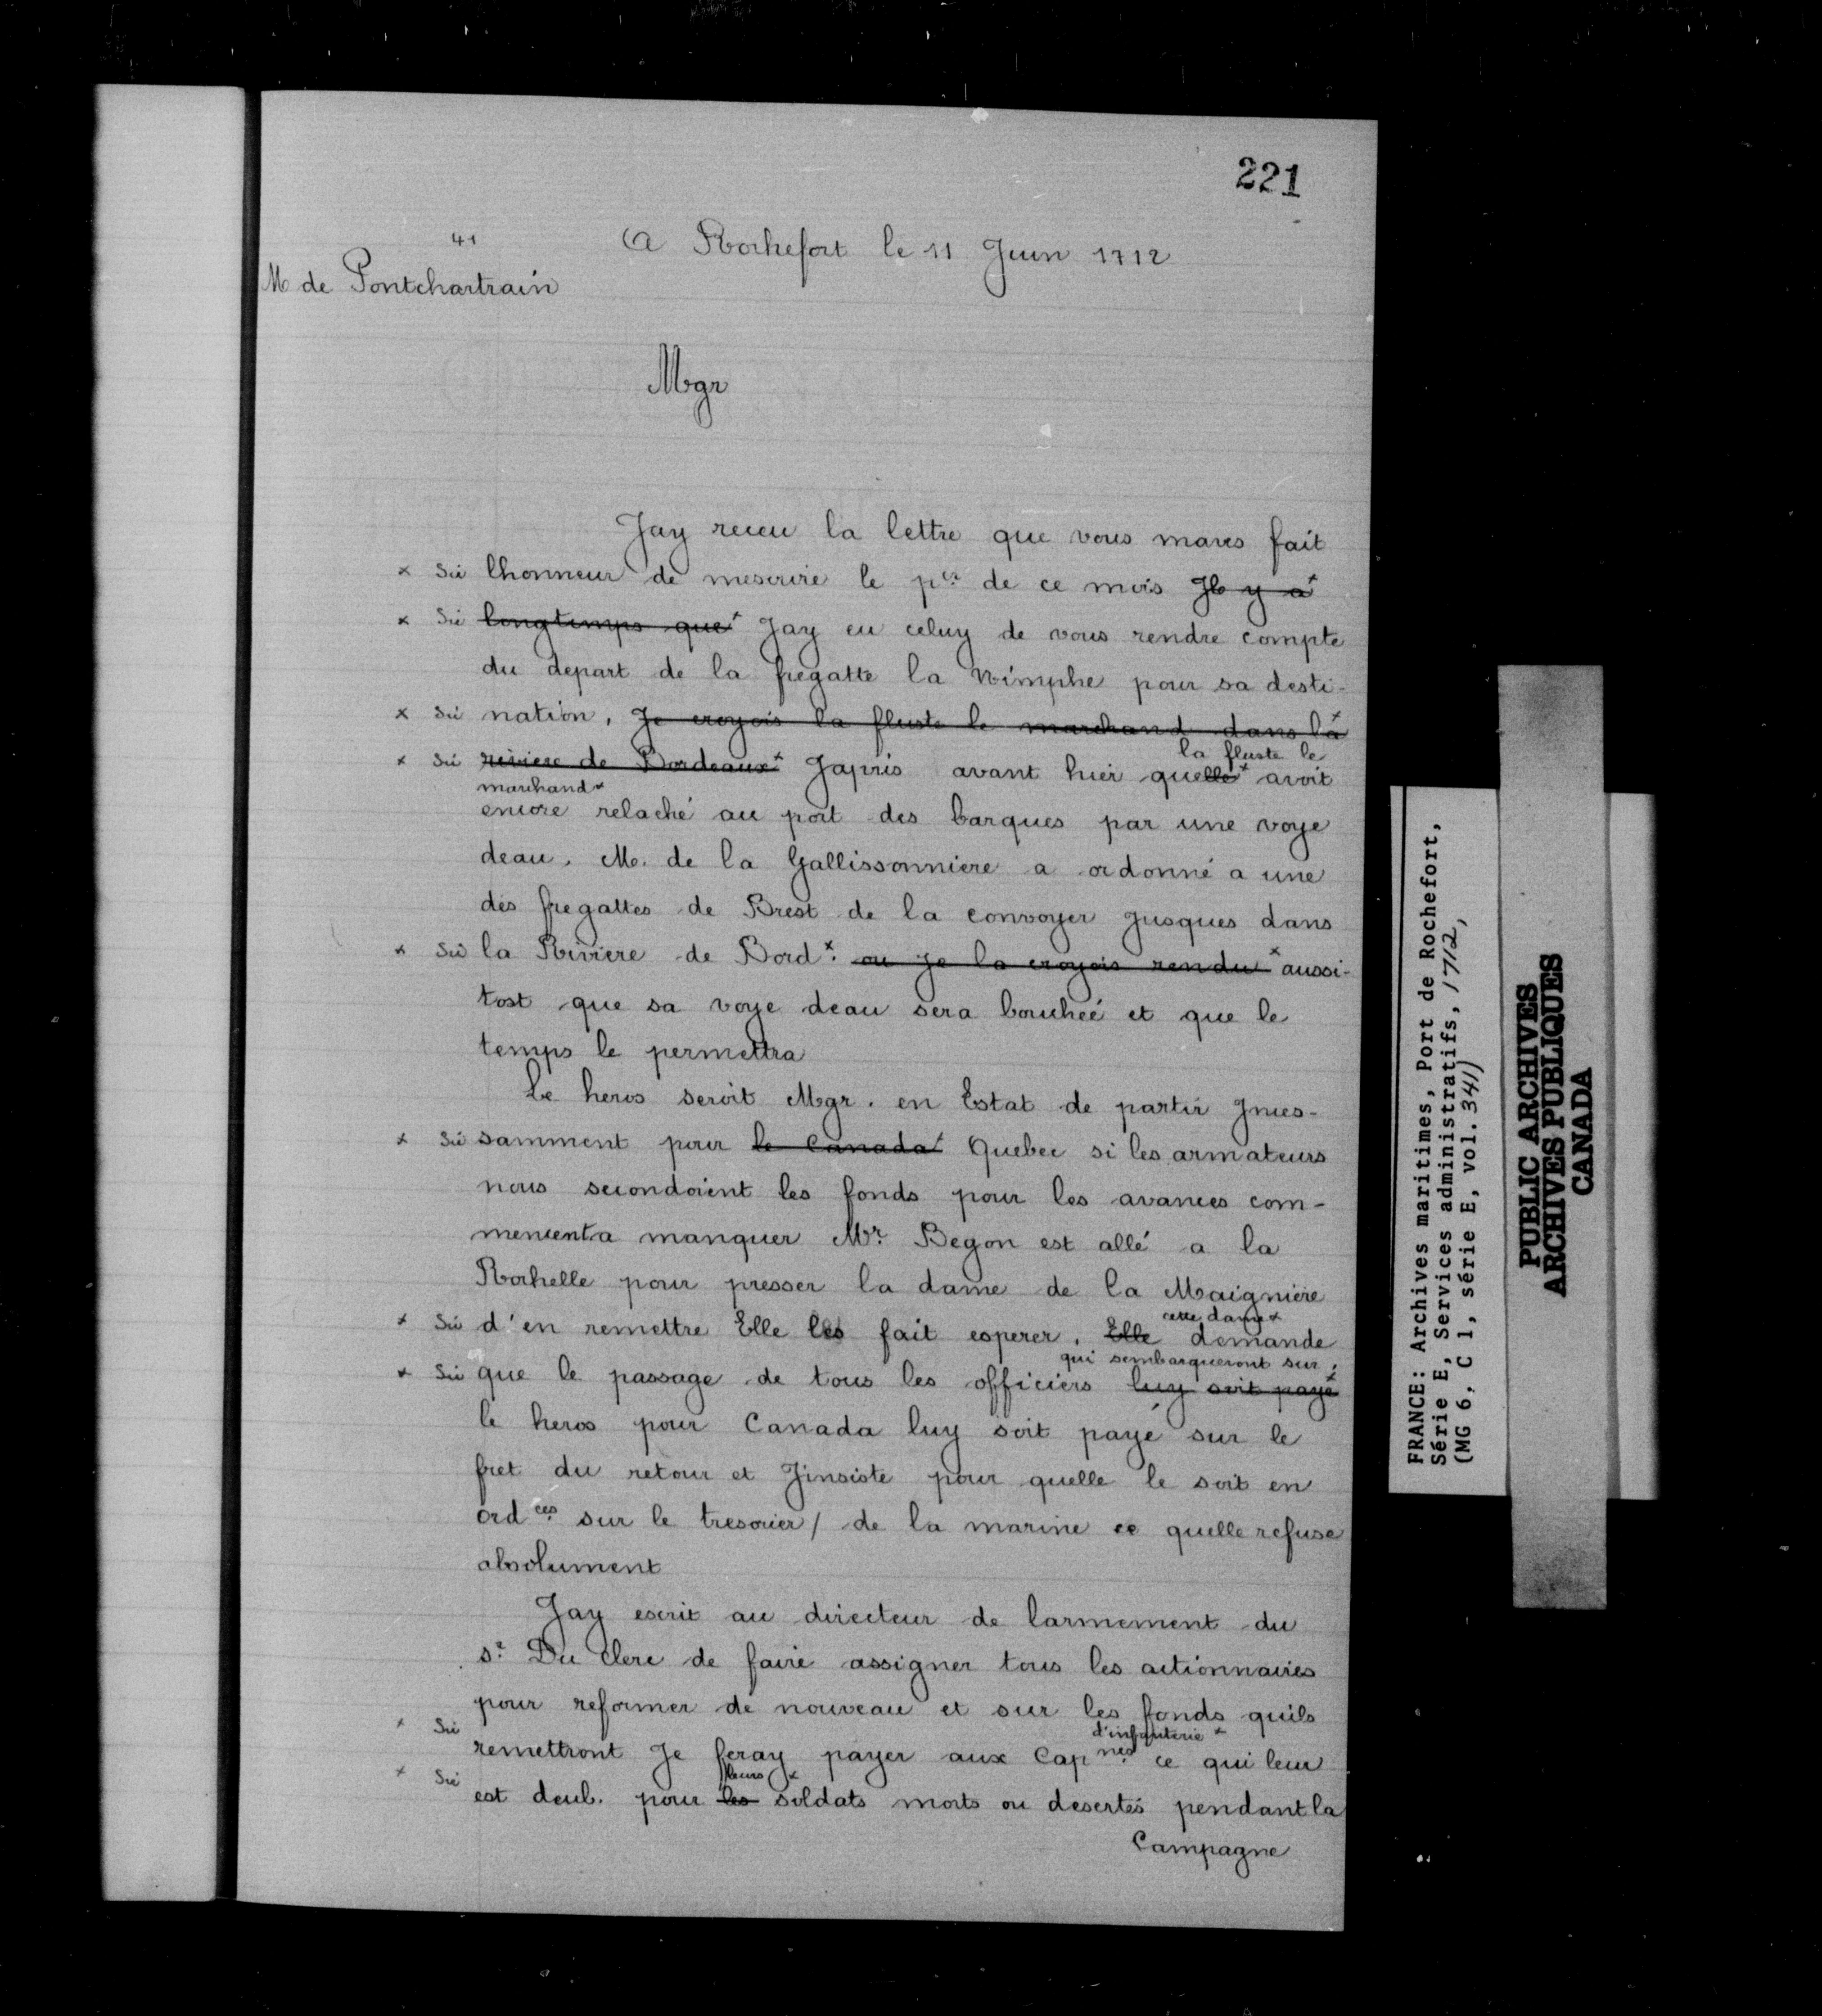 221
41
A Rochefort le 11 Juin 1712
M de Pontchartrain
Mgr
Jay receu la lettre que vous maves fait
x Sic lhonneur de mescrire le p.er de ce mois Il y a x
x Sic longtemps que x Jay eu celuy de vous rendre compte
du depart de la fregatte la Nimphe pour sa desti-
x Sic nation, Je croyois la fluste le marchand dans la x
la fluste le
x Sic riviere de Bordeaux x Japris avant hier quelle x avoit
marchand x
encore relaché au port des barques par une voye
deau. M. de la Gallissonniere a ordonné a une
des fregattes de Brest de la convoyer jusques dans
x Sic la Riviere de Bord.x ou je la croyois rendu x aussi-
tost que sa voye deau sera bouchée et que le
temps le permettra
Le heros seroit Mgr. en Estat de partir Jnces-
x Sic samment pour le Canada x Quebec si les armateurs
nous secondoient les fonds pour les avances com-
mencent a manquer Mr. Begon est allé a la
Rochelle pour presser la dame de la Maigniere
cette dame x
x Sic d'en remettre Elle les fait esperer. Elle demande
qui sembarqueront sur
x Sic que le passage de tous les officiers luy soit payé x
le heros pour Canada luy soit payé sur le
fret du retour et Jinsiste pour quelle le soit en
ord.ces sur le tresorier / de la marine ce quelle refuse
absolument
Jay escrit au directeur de larmement du
s.r Du Clerc de faire assigner tous les actionnaires
pour reformer de nouveau et sur les fonds quils
d'infanterie x
x Sic remettront Je feray payer aux Cap.nes ce qui leur
leurs x
x Sic est deub. pour les soldats morts ou desertés pendant la
Campagne
FRANCE: Archives maritimes, Port de Rochefort,
Série E, Services administratifs, 1712,
(MG 6, C 1, série E, vol. 341)
PUBLIC ARCHIVES
ARCHIVES PUBLIQUES
CANADA